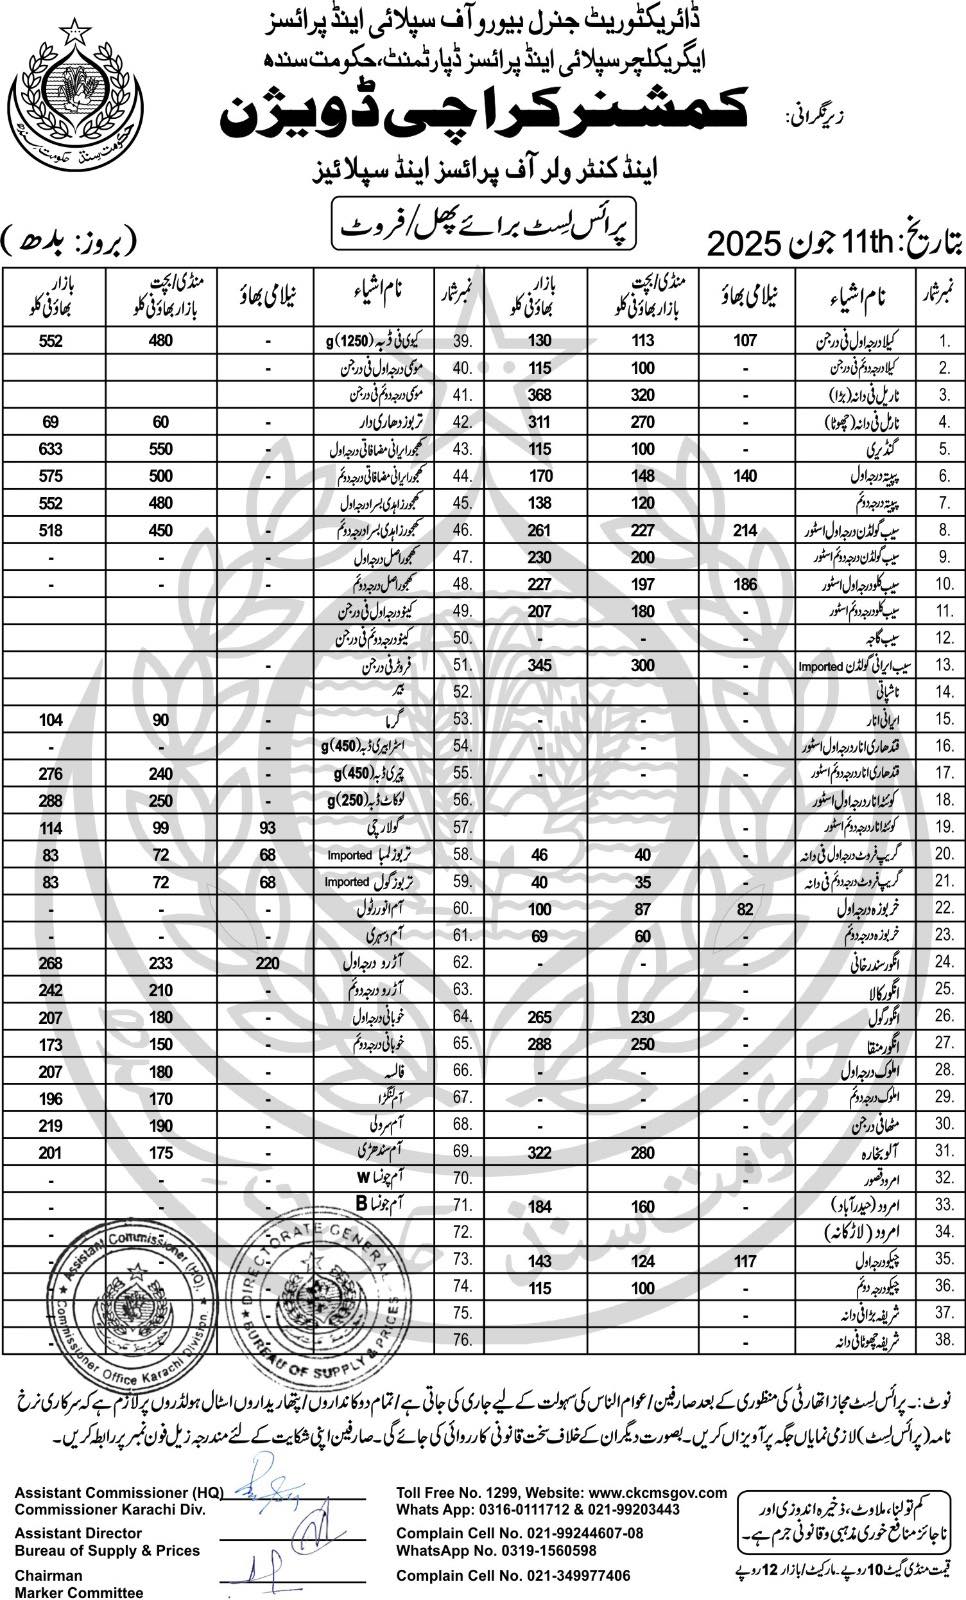 ڈائریکٹوریٹ جنرل بیورو آف سپلائی اینڈ پرائسز
ایگریکلچر سپلائی اینڈ پرائسز ڈپارٹمنٹ، حکومت سندھ
زیر نگرانی:
کمشنر کراچی ڈویژن
اینڈ کنٹرولر آف پرائسز اینڈ سپلائیز
پرائس لسٹ برائے پھل/فروٹ
بتاریخ: 11th جون 2025
(بروز: بدھ)
نمبر شمار نام اشیاء نیلامی بھاؤ منڈی/بچت بازار بھاؤ فی کلو بازار بھاؤ فی کلو نمبر شمار نام اشیاء نیلامی بھاؤ منڈی/بچت بازار بھاؤ فی کلو بازار بھاؤ فی کلو
1. کیلا درجہ اول فی درجن 107 113 130 39. کیوی فی ڈبہ (1250)g - 480 552
2. کیلا درجہ دوئم فی درجن - 100 115 40. موسمی درجہ اول فی درجن -
3. ناریل فی دانہ (بڑا) - 320 368 41. موسمی درجہ دوئم فی درجن
4. ناریل فی دانہ (چھوٹا) - 270 311 42. تربوز دھاری دار - 60 69
5. گنڈیری - 100 115 43. کھجور ایرانی مضافاتی درجہ اول - 550 633
6. پپیتہ درجہ اول 140 148 170 44. کھجور ایرانی مضافاتی درجہ دوئم - 500 575
7. پپیتہ درجہ دوئم - 120 138 45. کھجور زاہدی بسرا درجہ اول - 480 552
8. سیب گولڈن درجہ اول اسٹور 214 227 261 46. کھجور زاہدی بسرا درجہ دوئم - 450 518
9. سیب گولڈن درجہ دوئم اسٹور - 200 230 47. کھجور اصل درجہ اول - - -
10. سیب کلو درجہ اول اسٹور 186 197 227 48. کھجور اصل درجہ دوئم - - -
11. سیب کلو درجہ دوئم اسٹور - 180 207 49. کینو درجہ اول فی درجن -
12. سیب گاجہ - - - 50. کینو درجہ دوئم فی درجن
13. سیب ایرانی گولڈن Imported - 300 345 51. فروٹر فی درجن -
14. ناشپاتی - 52. بیر
15. ایرانی انار - - - 53. گرما - 90 104
16. قندھاری انار درجہ اول اسٹور - - - 54. اسٹرابیری ڈبہ (450)g - - -
17. قندھاری انار درجہ دوئم اسٹور - - - 55. چیری ڈبہ (450)g - 240 276
18. کوئٹہ انار درجہ اول اسٹور 56. لوکاٹ ڈبہ (250)g - 250 288
19. کوئٹہ انار درجہ دوئم اسٹور - 57. گولارچی 93 99 114
20. گریپ فروٹ درجہ اول فی دانہ - 40 46 58. تربوز لمبا Imported 68 72 83
21. گریپ فروٹ درجہ دوئم فی دانہ - 35 40 59. تربوز گول Imported 68 72 83
22. خربوزہ درجہ اول 82 87 100 60. آم انور رٹول - - -
23. خربوزہ درجہ دوئم - 60 69 61. آم دسہری - - -
24. انگور سندرخانی - - - 62. آڑو درجہ اول 220 233 268
25. انگور کالا 63. آڑو درجہ دوئم - 210 242
26. انگور گول - 230 265 64. خوبانی درجہ اول - 180 207
27. انگور منقا - 250 288 65. خوبانی درجہ دوئم - 150 173
28. املوک درجہ اول - - - 66. فالسہ - 180 207
29. املوک درجہ دوئم - - - 67. آم لنگڑا - 170 196
30. مٹھا فی درجن - - - 68. آم سرولی - 190 219
31. آلو بخارہ - 280 322 69. آم سندھڑی - 175 201
32. امرود قصور - 70. آم چونسا W - - -
33. امرود (حیدرآباد) - 160 184 71. آم چونسا B - - -
34. امرود (لاڑکانہ) - 72.
35. چیکو درجہ اول 117 124 143 73.
36. چیکو درجہ دوئم - 100 115 74.
37. شریفہ بڑا فی دانہ - 75.
38. شریفہ چھوٹا فی دانہ - 76.
Assistant Commissioner (HQ).
Commissioner Office Karachi Division.
DIRECTORATE GENERAL
BUREAU OF SUPPLY & PRICES
نوٹ:۔ پرائس لسٹ مجاز اتھارٹی کی منظوری کے بعد صارفین/عوام الناس کی سہولت کے لیے جاری کی جاتی ہے/تمام دوکانداروں/پتھاریداروں اسٹال ہولڈروں پر لازم ہے کہ سرکاری نرخ
نامہ (پرائس لسٹ) لازمی نمایاں جگہ پر آویزاں کریں۔ بصورت دیگر ان کے خلاف سخت قانونی کارروائی کی جائے گی۔ صارفین اپنی شکایت کے لئے مندرجہ زیل فون نمبر پر رابطہ کریں۔
Assistant Commissioner (HQ)
Commissioner Karachi Div.
Assistant Director
Bureau of Supply & Prices
Chairman
Marker Committee
Toll Free No. 1299, Website: www.ckcmsgov.com
Whats App: 0316-0111712 & 021-99203443
Complain Cell No. 021-99244607-08
WhatsApp No. 0319-1560598
Complain Cell No. 021-349977406
کم تولنا، ملاوٹ، ذخیرہ اندوزی اور
ناجائز منافع خوری مذہبی و قانونی جرم ہے۔
قیمت منڈی گیٹ 10 روپے۔ مارکیٹ/بازار 12 روپے